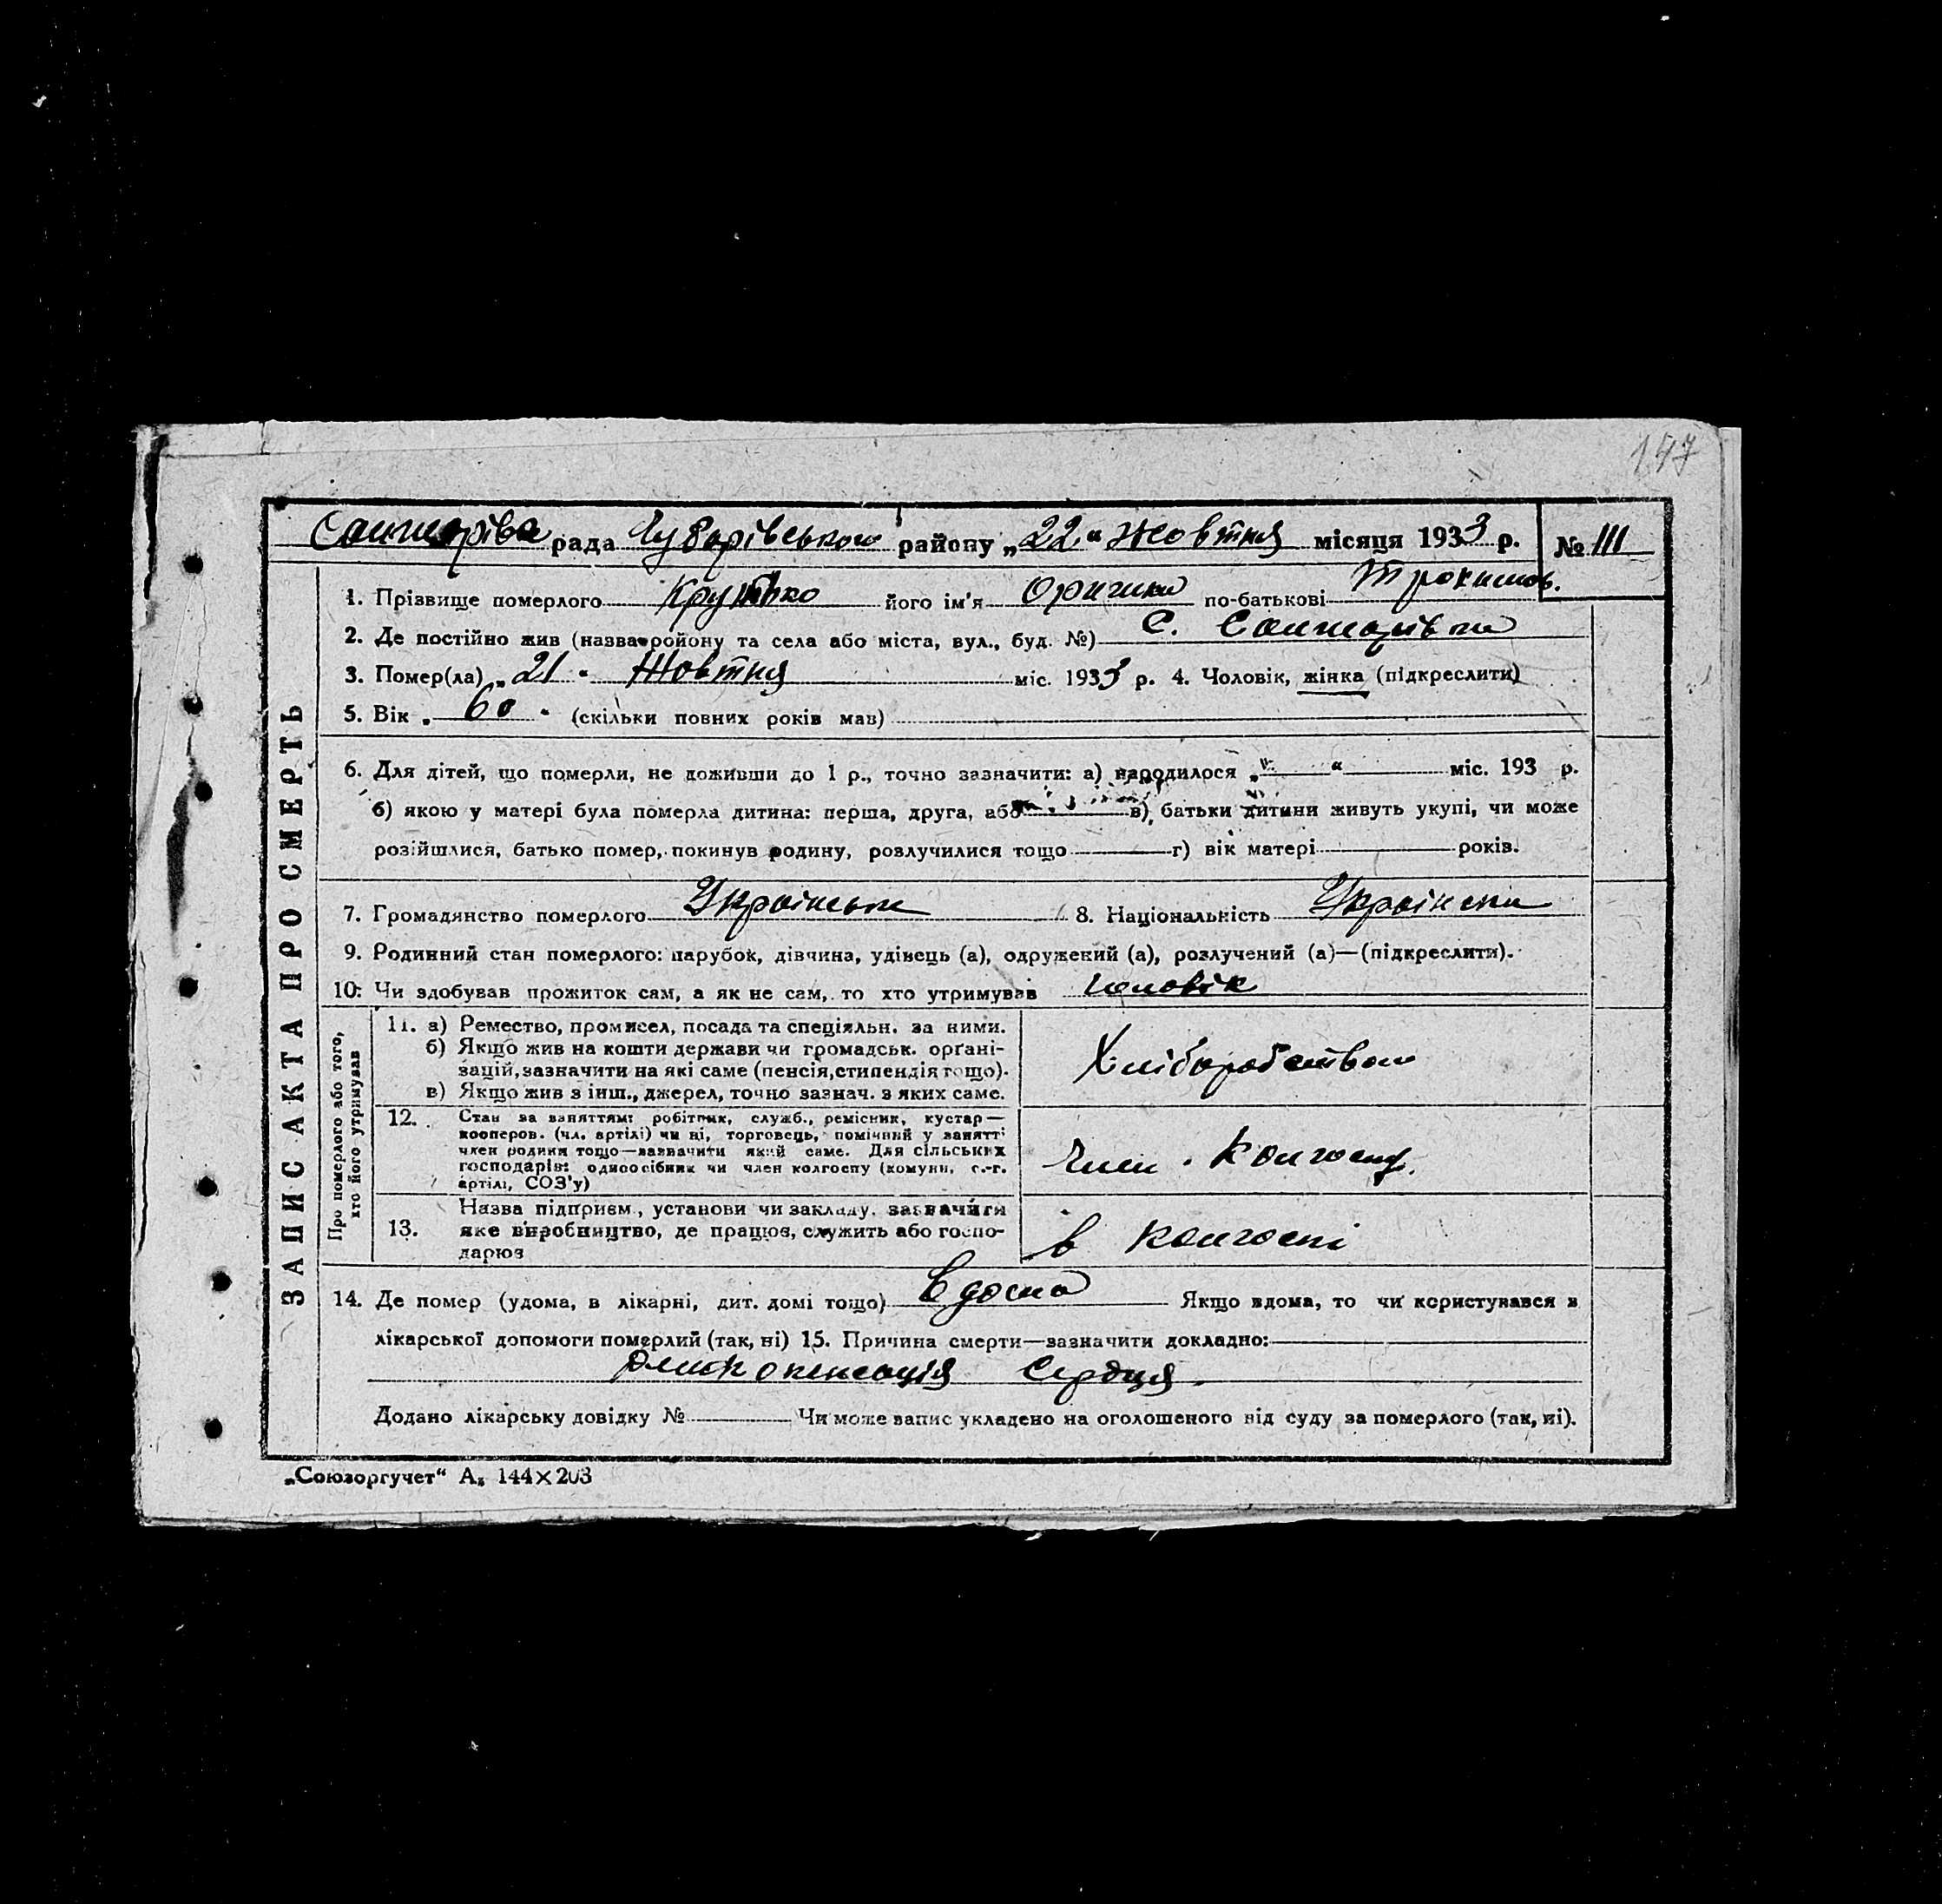 147
рада Чубарівського району „22“ Жовтня місяця 1933 р. № 111
1. Прізвище померлого Крутько його ім'я по-батькові Трохимов.
2. Де постійно жив (назва ройону та села або міста, вул., буд. №) с.
3. Помер(ла) „21“ Жовтня міс. 1933 р. 4. Чоловік, жінка (підкреслити)
5. Вік „60“ (скільки повних років мав)
6. Для дітей, що померли, не доживши до 1 р., точно зазначити: а) народилося „ “ міс. 193 р.
б) якою у матері була померла дитина: перша, друга, або в) батьки дитини живуть укупі, чи може
розійшлися, батько помер, покинув родину, розлучилися тощо г) вік матері років.
7. Громадянство померлого 8. Національність
9. Родинний стан померлого: парубок, дівчина, удівець (а), одружений (а), розлучений (а)—(підкреслити).
10. Чи здобував прожиток сам, а як не сам, то хто утримував чоловік
ЗАПИС АКТА ПРО СМЕРТЬ
Про померлого або того,
хто його утримував
11. а) Ремество, промисел, посада та спеціяльн. за ними.
б) Якщо жив на кошти держави чи громадськ. органі-
зацій, зазначити на які саме (пенсія, стипендія тощо).
в) Якщо жив з інш., джерел, точно зазнач. з яких саме.
Хліборобством
12. Стан за заняттям: робітник, служб., ремісник, кустар—
кооперов. (чл. артілі) чи ні, торговець, помічний у занятті
член родини тощо—зазначити який саме. Для сільських
господарів: одноосібник чи член колгоспу (комуни, с.-г.
артілі, СОЗ'у)
член. колгоспу.
13. Назва підприєм., установи чи закладу. зазначити
яке виробництво, де працює, служить або госпо-
дарює
в колгоспі
14. Де помер (удома, в лікарні, дит. домі тощо) вдома Якщо вдома, то чи користувався з
лікарської допомоги померлий (так, ні) 15. Причина смерти—зазначити докладно:
Сердця.
Додано лікарську довідку № Чи може запис укладено на оголошеного від суду за померлого (так, ні).
„Союзоргучет“ А₅ 144×203